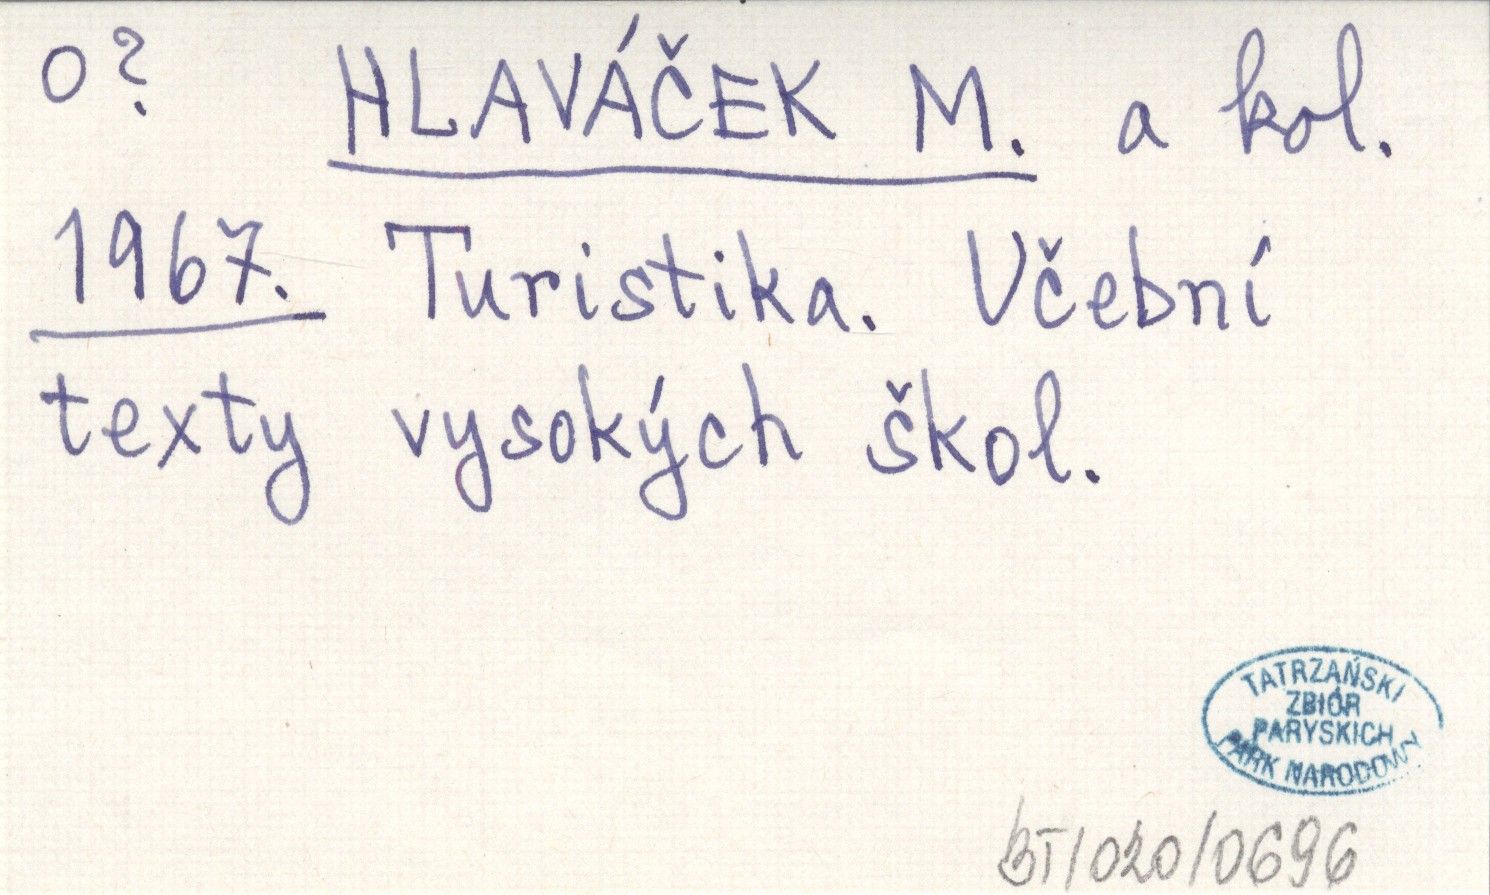 o? HLAVÁČEK M. a kol.
1967. Turistika. Učební
texty vysokých škol.
TATRZAŃSKI
ZBIÓR
PARYSKICH
PARK NARODOWY
BT/020/0696